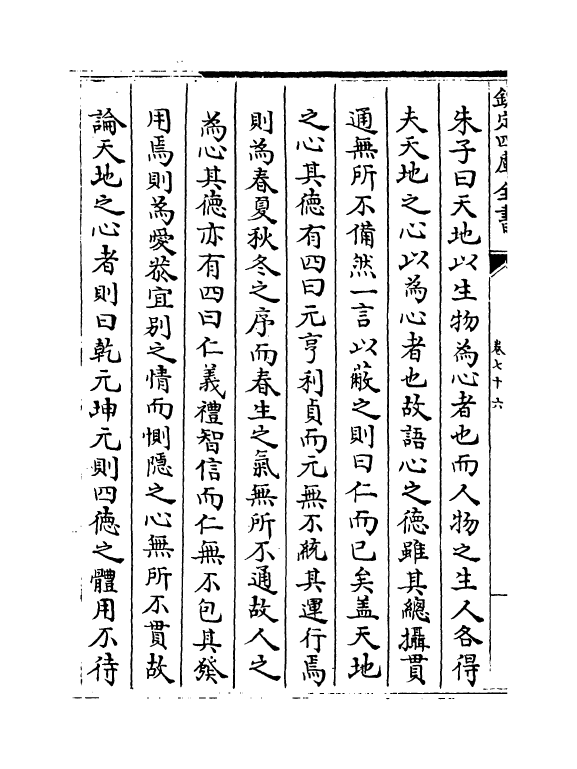 欽定四庫全書
卷七十六
朱子曰天地以生物為心者也而人物之生人各得
夫天地之心以為心者也故語心之德雖其總攝貫
通無所不備然一言以蔽之則曰仁而已矣蓋天地
之心其德有四曰元亨利貞而元無不統其運行焉
則為春夏秋冬之序而春生之氣無所不通故人之
為心其德亦有四曰仁義禮智信而仁無不包其發
用焉則為愛恭宜别之情而惻隱之心無所不貫故
論天地之心者則曰乾元坤元則四德之體用不待